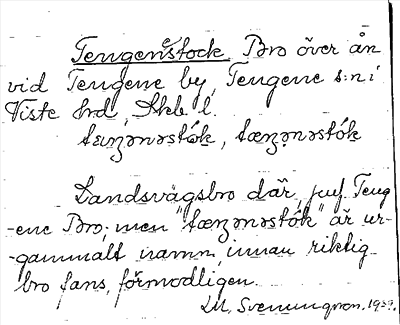 Tengenstock Bro över ån
vid Tengene by, Tengene s:n i
Viste hrd, Skb l.
tæŋənəstók, tæŋənəstók
Landsvägsbro där, juf. Teng
-ene Bro; men "tæŋənəstók" är ur-
-gammalt namn, innan riktig
bro fans, förmodligen.
M. Svenungson. 1939.